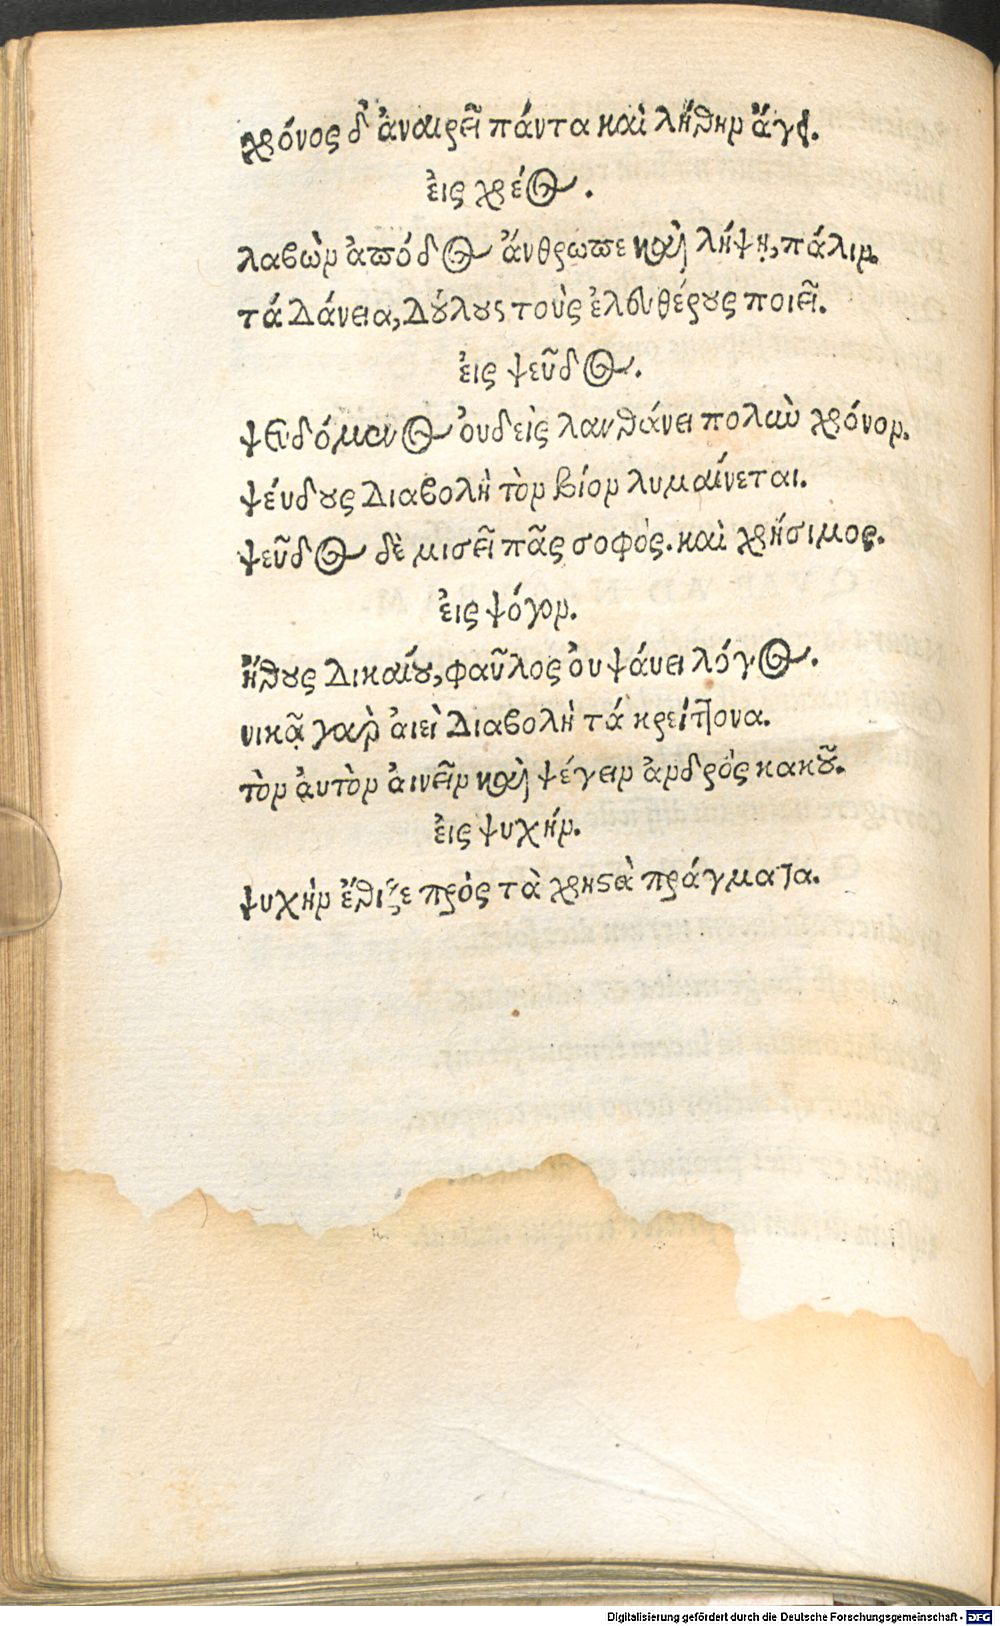 χρόνος δ' ἀναιρεῖ πάντα καὶ λήθην ἄγει.
ἐις χρέος.
λαβὼν ἀπόδος ἄνθρωπε καὶ λήψῃ, πάλιν.
τά δάνεια, δούλους τοὺς ἐλευθέρους ποιεῖ.
ἐις ψεῦδος.
ψευδόμενος ὀυδεὶς λανθάνει πολὺν χρόνον.
ψέυδους διαβολὴ τὸν βίον λυμαίνεται.
ψεῦδος δὲ μισεῖ πᾶς σοφὸς. καὶ χρήσιμος.
ἐις ψόγον.
ἤθους δικαίου, φαῦλος ὀυ ψάυει λόγος.
νικᾷ γαρ̀ ἀιεὶ διαβολὴ τά κρείττονα.
τὸν ἀυτὸν ἀινεῖν καὶ ψέγειν ἀνδρὸς κακοῦ.
ἐις ψυχήν.
ψυχὴν ἔθιζε πρὸς τὰ χρηστὰ πράγματα.
Digitalisierung gefördert durch die Deutsche Forschungsgemeinschaft - DFG